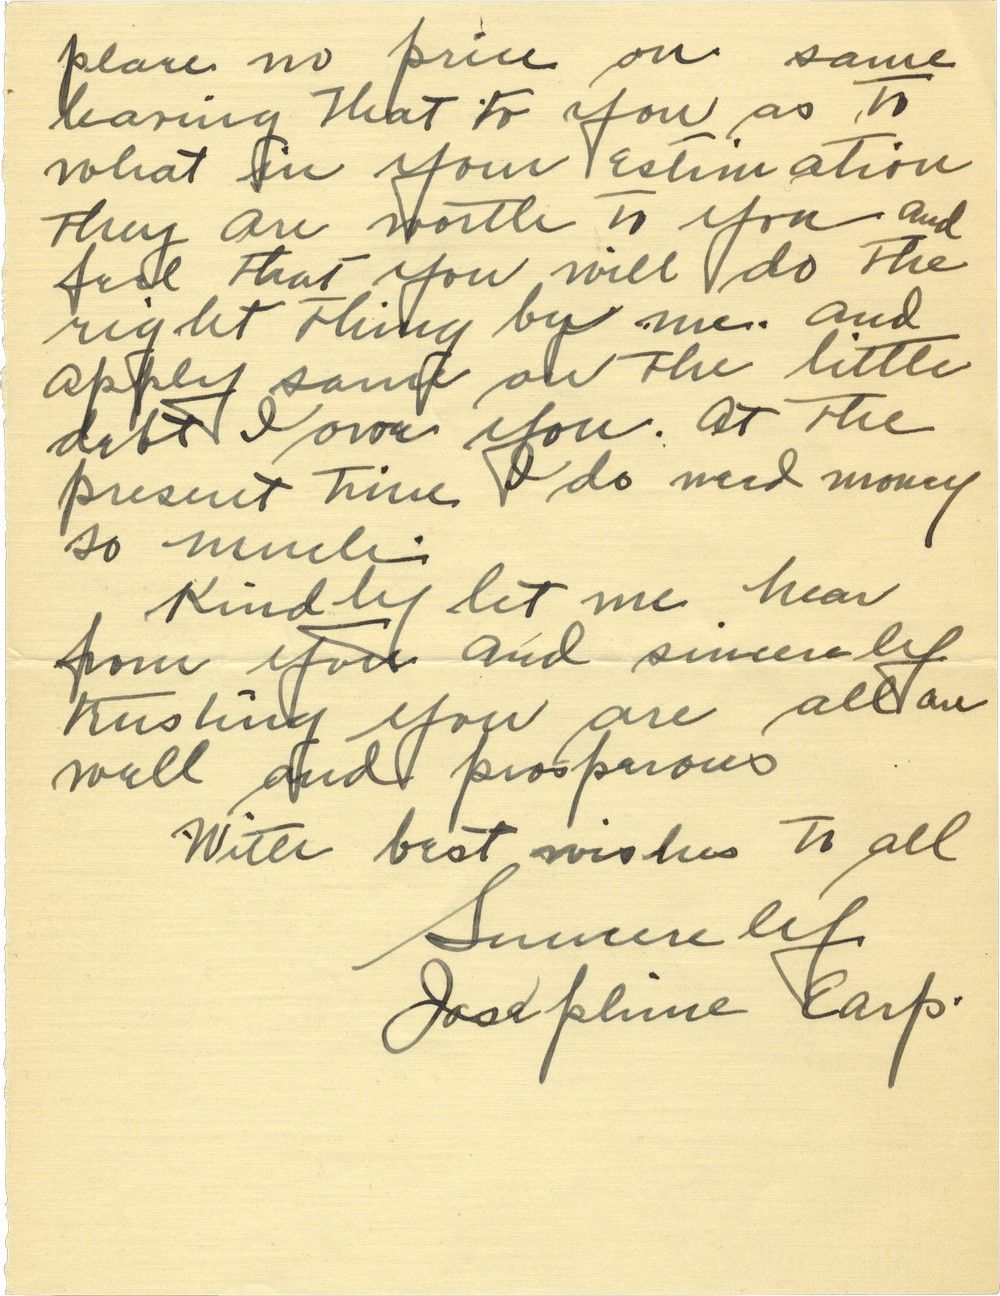 place no price on same
leaving that to you as to
what in your estimation
they are worth to you and
feel that you will do the
right thing by me. and
apply same on the little
debt I owe you. At the
present time I do need money
so much.
Kindly let me hear
from you and sincerely
trusting you are all are
well and prosperous
With best wishes to all
Sincerely
Josephine Earp.